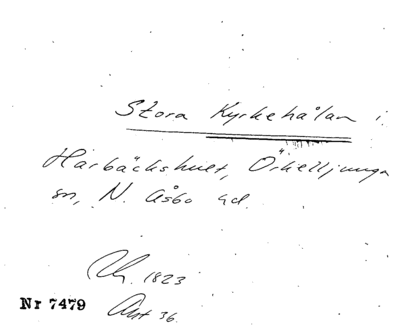 Stora Kyrkehålan i
Harbäckshult, Örkelljunga
sn, N. Åsbo hd.
1823
Nr 7479
Akt 36.